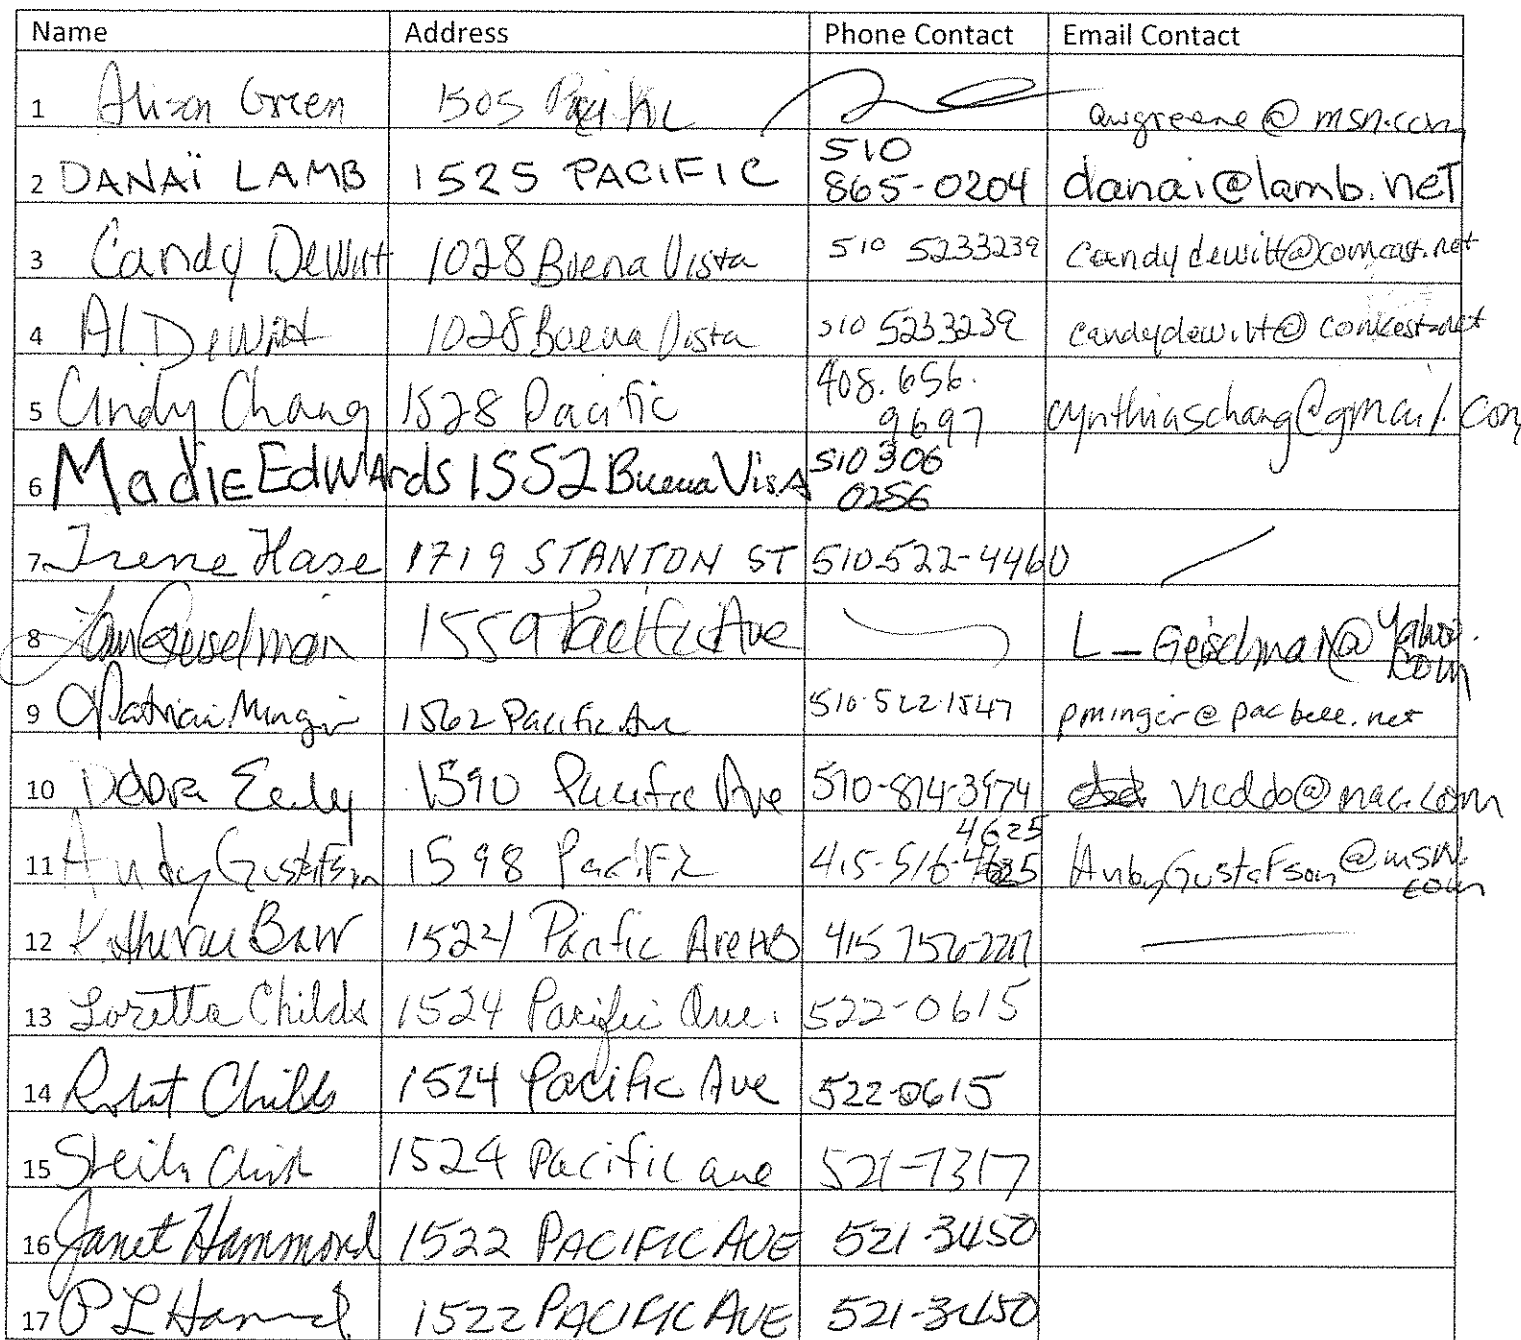 Name Address Phone Contact Email Contact
1 Alison Green 1505 Pacific awgreene@msn.com
2 DANAÏ LAMB 1525 PACIFIC 510 865-0204 danai@lamb.net
3 Candy DeWitt 1028 Buena Vista 510 5233239 candydewitt@comcast.net
4 Al DeWitt 1028 Buena Vista 510 5233239 candydewitt@comcast.net
5 Cindy Chang 1528 Pacific 408.656.9697 cynthiaschang@gmail.com
6 Madie Edwards 1552 Buena Vista 510 306 0256
7 Irene Hase 1719 STANTON ST 510-522-4460
8 Geiselman 1559 Pacific Ave L_Geiselman@yahoo.com
9 Patricia Minger 1562 Pacific Ave 510-522-1547 pminger@pacbell.net
10 Debra 1590 Pacific Ave 510-814-3974 @mac.com
11 Andy Gustafson 1598 Pacific 415-516-4625 4625 AndyGustafson@msn.com
12 1524 Pacific Ave 415
13 Loretta Childs 1524 Pacific Ave. 522-0615
14 Robert Childs 1524 Pacific Ave 522-0615
15 Sheila 1524 Pacific ave 521-7317
16 Janet Hammond 1522 PACIFIC AVE 521-3450
17 P L Hammond 1522 PACIFIC AVE 521-3450